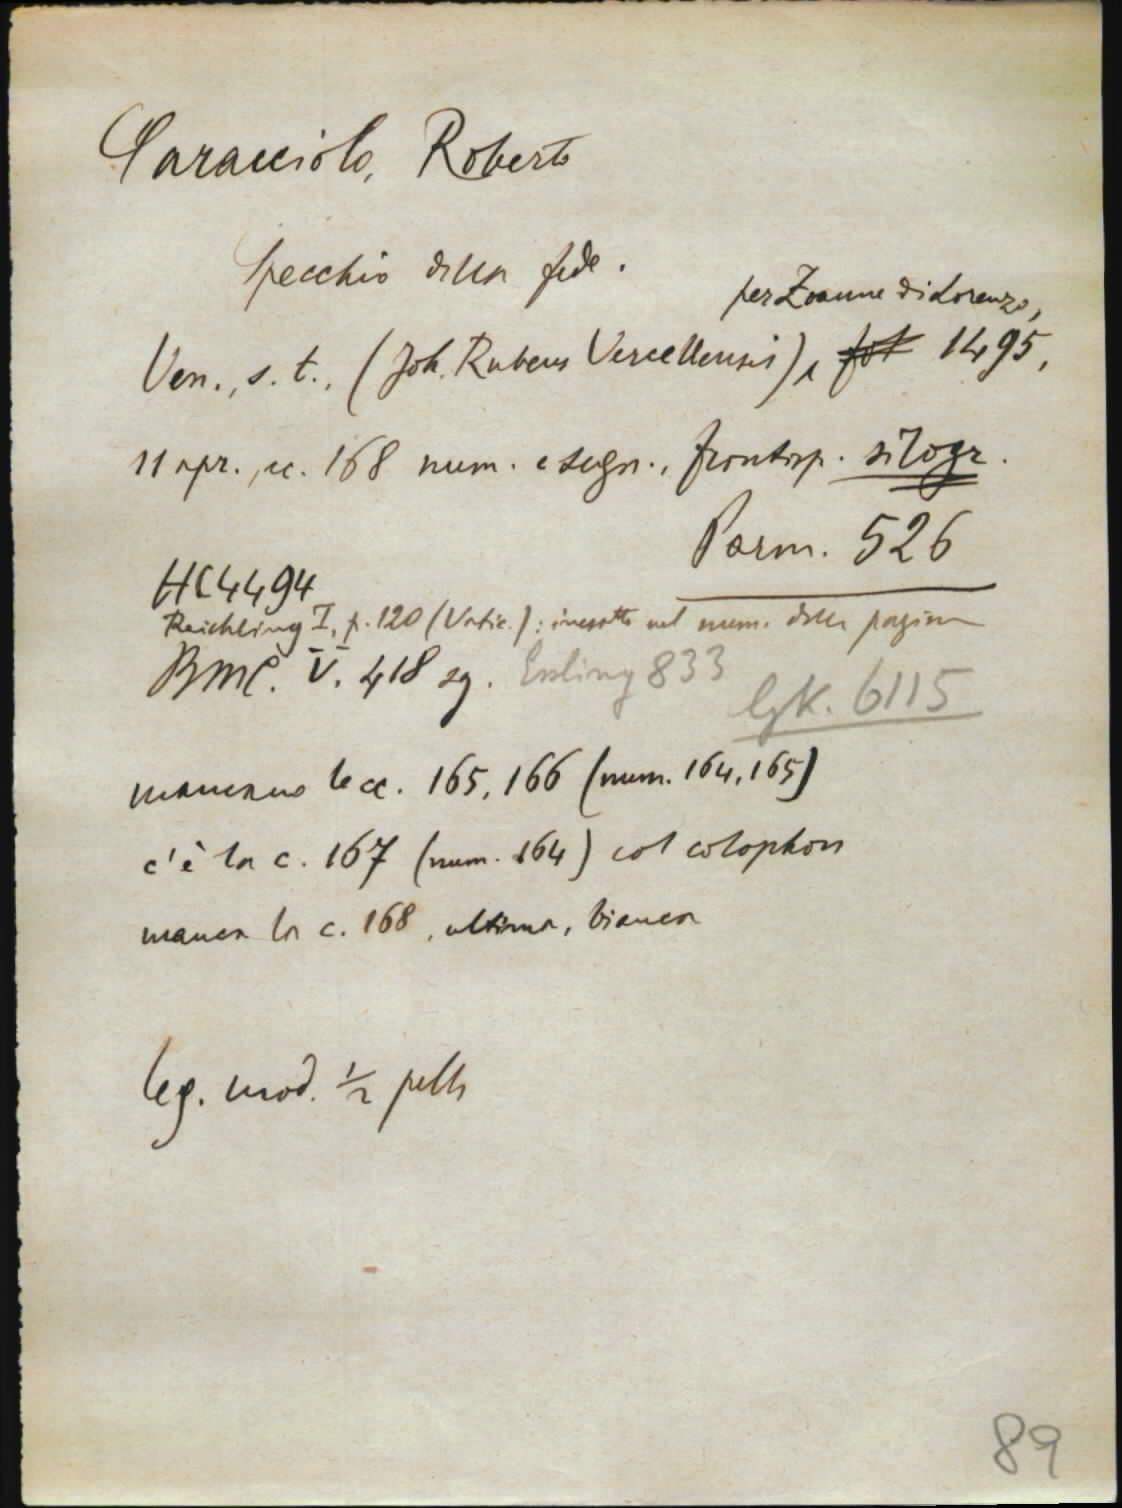 Caracciolo, Roberto
Specchio della fede.
per Zoanne di Lorenzo,
Ven., s. t., (Joh. Rubeus Vercellensis), 1495,
11 apr., cc. 168 num. e segn., frontisp. silogr.
Parm. 526
HC 4494
Reichling I, p. 120 (Vatic.): inesatto nel num. delle pagine
BMC. V. 418 sg. Essling 833
Gk. 6115
mancano le cc. 165, 166 (num. 164, 165)
c'è la c. 167 (num. 164) col colophon
manca la c. 168, ultima, bianca
leg. mod. 1/2 pelle
89